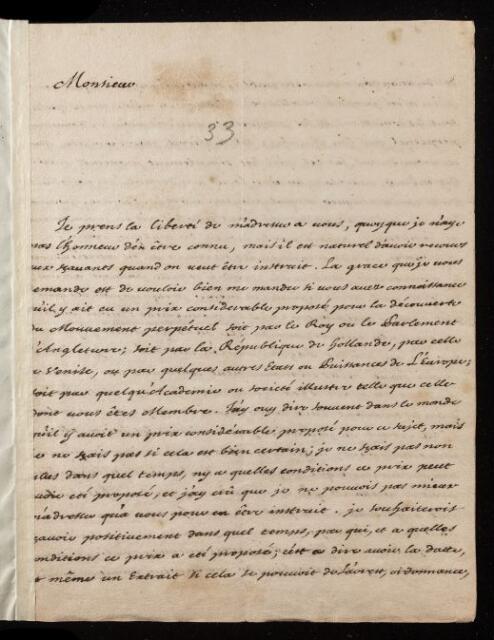 Monsieur
33
Je prens la liberté de m'adresser a vous, quoyque je n'aye
pas l'honneur d'en être connu, mais il est naturel d'avoir recours
aux sçavants quand on veut être instruit. La grace que je vous
demande est de vouloir bien me mander si vous avez connoissance
qu'il y ait eu un prix considerable proposé pour la découverte
du Mouvement perpétuel soit par le Roy ou le Parlement
d'Angleterre; soit par la République de Hollande, par celle
de Venise, ou par quelques autres Etats ou Puissances de L'Europe;
soit par quelqu'Academie ou societé illustre telle que celle
dont vous êtes Membre. J'ay ouy dire souvent dans le monde
qu'il y avoit un prix considérable proposé pour ce sujet, mais
je ne sçais pas si cela est bien certain; je ne sçais pas non
plus dans quel temps, ny a quelles conditions ce prix peut
avoir eté proposé, et j'ay crû que je ne pouvois pas mieux
m'adresser qu'a vous pour en être instruit. je souhaiterois
sçavoir positivement dans quel temps, par qui, et a quelles
conditions ce prix a eté proposé; c'est a dire avoir la datte,
et même un Extrait si cela se pouvoit de L'arrest, ordonnance,